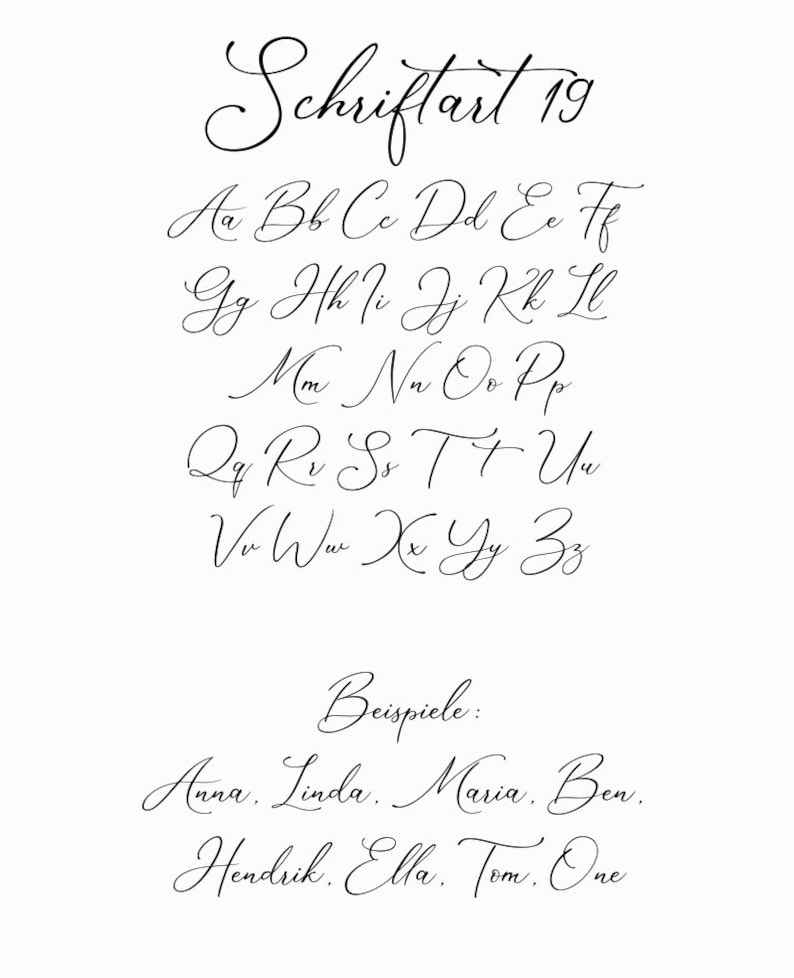 Schriftart 19
Aa Bb Cc Dd Ee Ff
Gg Hh Ii Jj Kk Ll
Mm Nn Oo Pp
Qq Rr Ss Tt Uu
Vv Ww Xx Yy Zz
Beispiele:
Anna, Linda, Maria, Ben,
Hendrik, Ella, Tom, One